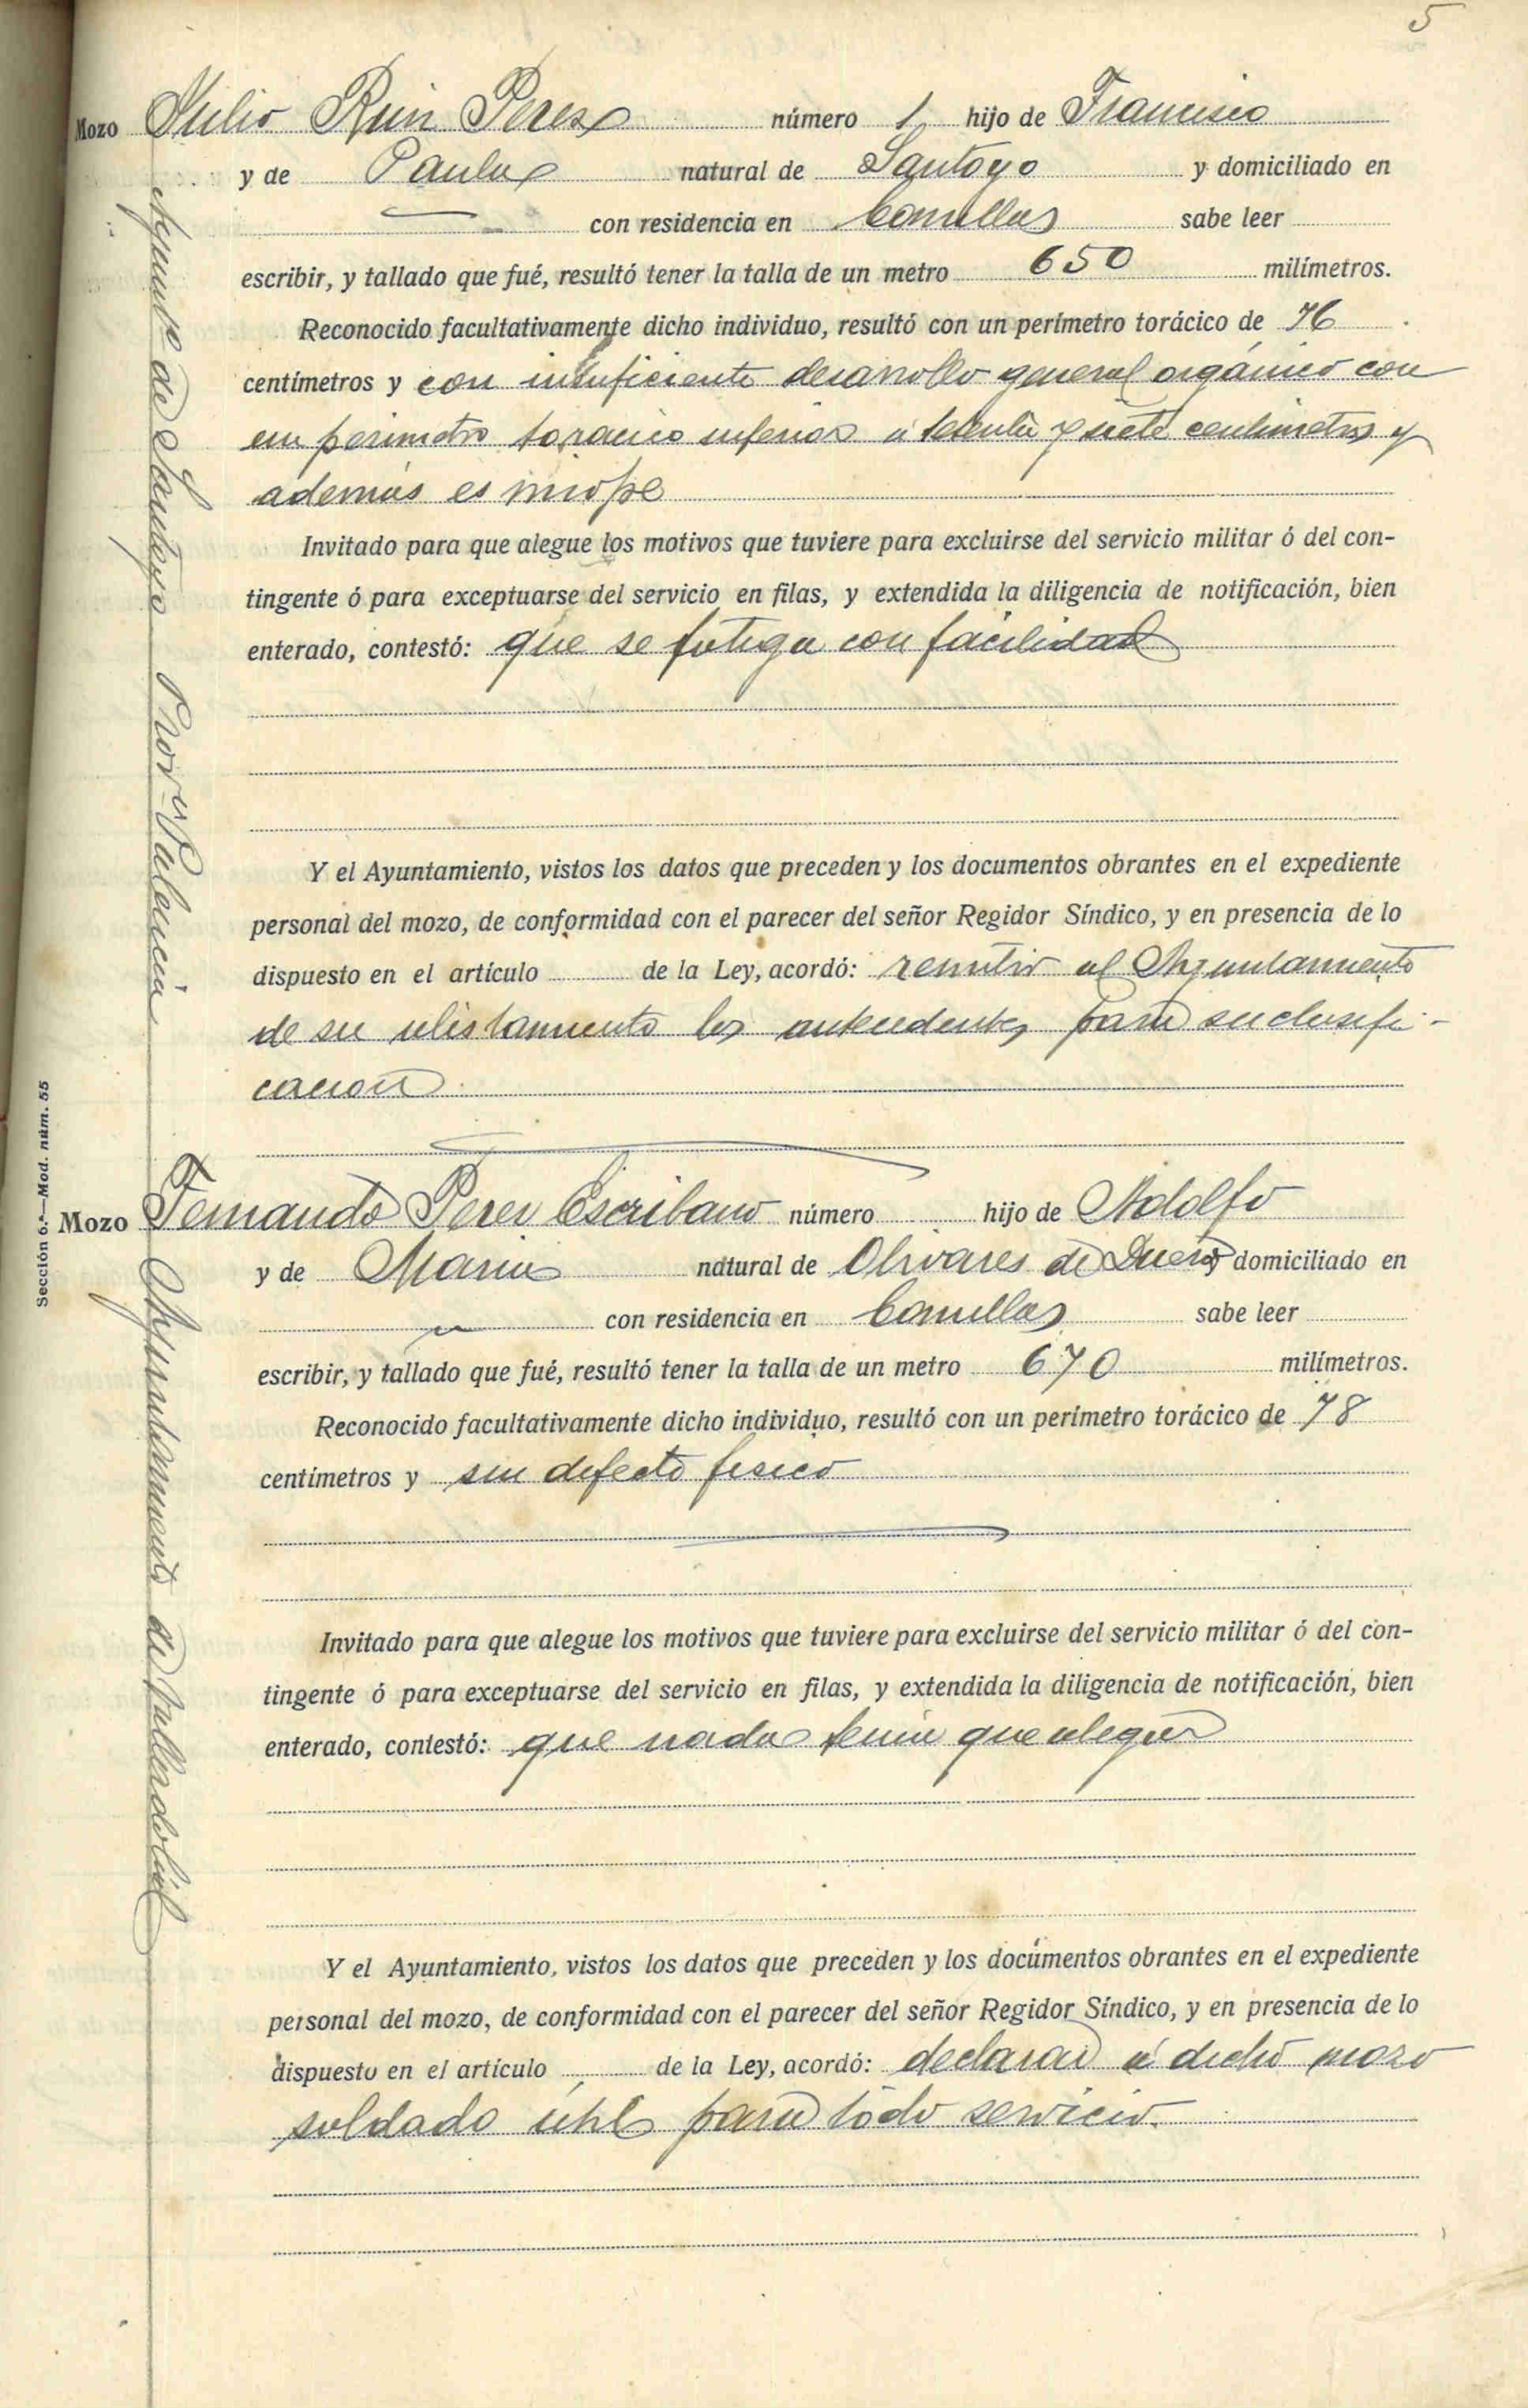 5
Mozo Julio Ruiz Perez número 1 hijo de Francisco
y de Paula natural de Santoyo y domiciliado en
con residencia en Comillas sabe leer
escribir, y tallado que fué, resultó tener la talla de un metro 650 milímetros.
Reconocido facultativamente dicho individuo, resultó con un perímetro torácico de 76
centímetros y con insuficiente desarrollo general orgánico con
un perimetro toracico inferior á setenta y siete centimetros y
además es miope
Invitado para que alegue los motivos que tuviere para excluirse del servicio militar ó del con-
tingente ó para exceptuarse del servicio en filas, y extendida la diligencia de notificación, bien
enterado, contestó: que se fatiga con facilidad
Y el Ayuntamiento, vistos los datos que preceden y los documentos obrantes en el expediente
personal del mozo, de conformidad con el parecer del señor Regidor Síndico, y en presencia de lo
dispuesto en el artículo de la Ley, acordó: remitir al Ayuntamiento
de su alistamiento los antecedentes para su clasifi-
cacion
Ayunto de Santoyo Prov Palencia
Sección 6.ª—Mod. núm. 55
Mozo Fernando Perez Escribano número hijo de Adolfo
y de Maria natural de Olivares de Duero y domiciliado en
con residencia en Comillas sabe leer
escribir, y tallado que fué, resultó tener la talla de un metro 670 milímetros.
Reconocido facultativamente dicho individuo, resultó con un perímetro torácico de 78
centímetros y sin defecto fisico
Invitado para que alegue los motivos que tuviere para excluirse del servicio militar ó del con-
tingente ó para exceptuarse del servicio en filas, y extendida la diligencia de notificación, bien
enterado, contestó: que nada tenia que alegar
Y el Ayuntamiento, vistos los datos que preceden y los documentos obrantes en el expediente
personal del mozo, de conformidad con el parecer del señor Regidor Síndico, y en presencia de lo
dispuesto en el artículo de la Ley, acordó: declarar á dicho mozo
soldado útil para todo servicio.
Ayuntamiento de Valladolid